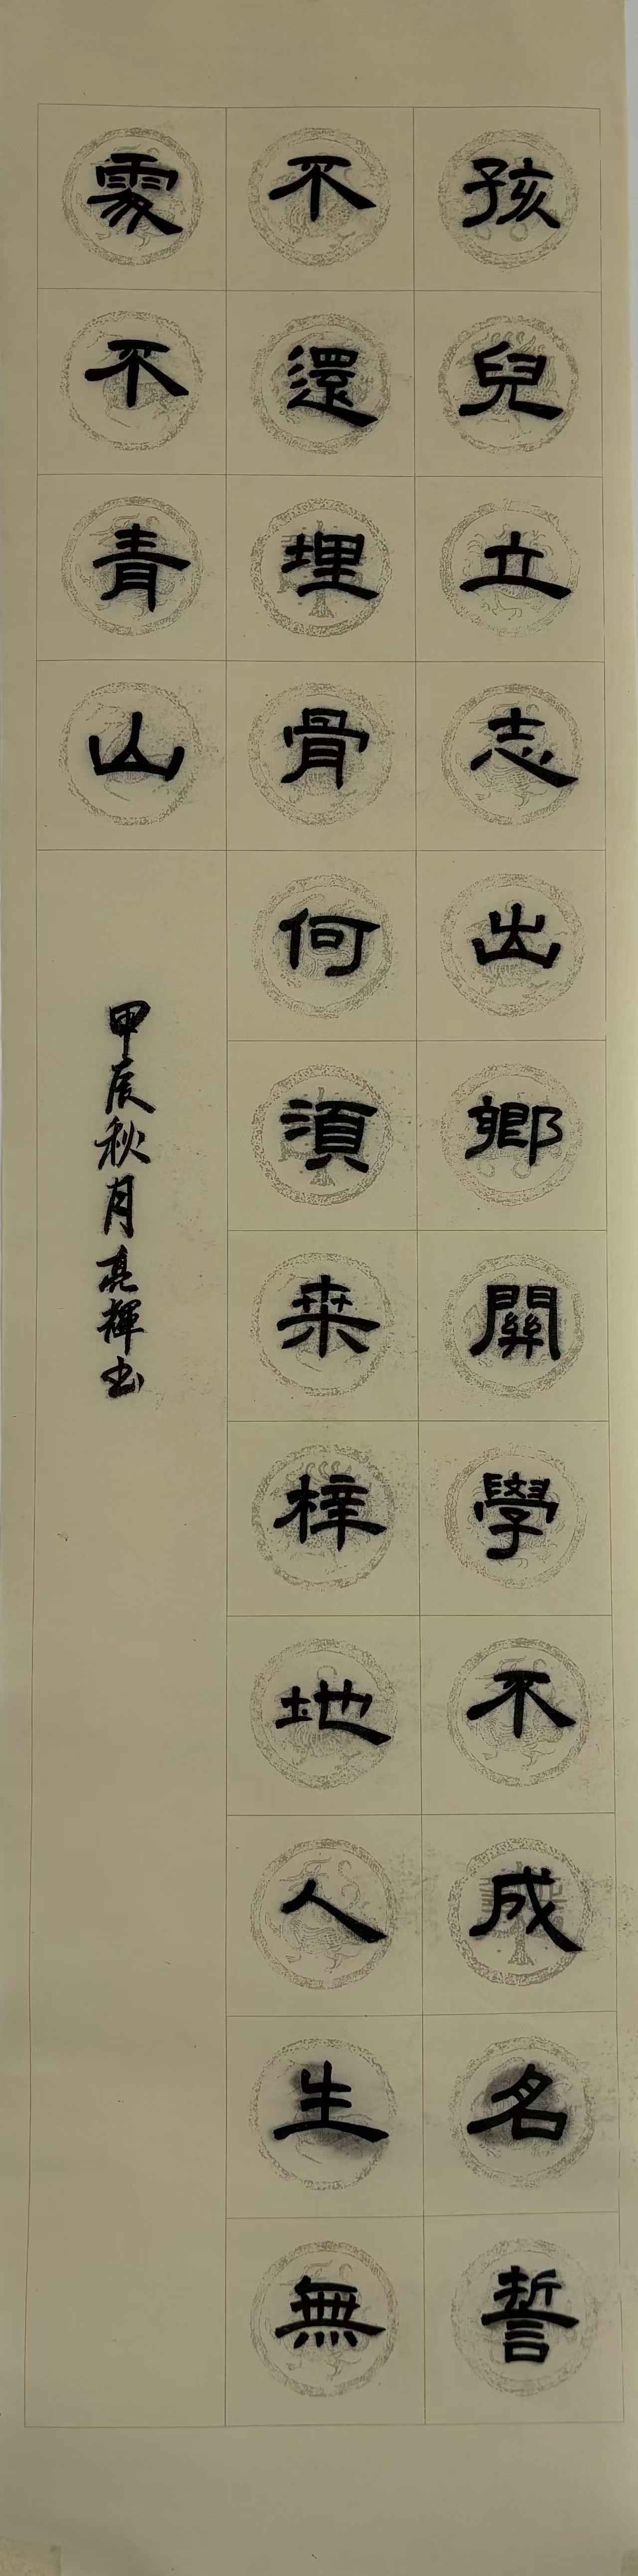 孩兒立志出鄉關學不成名誓
不還埋骨何須桒梓地人生無
處不青山
甲辰秋月亮輝書